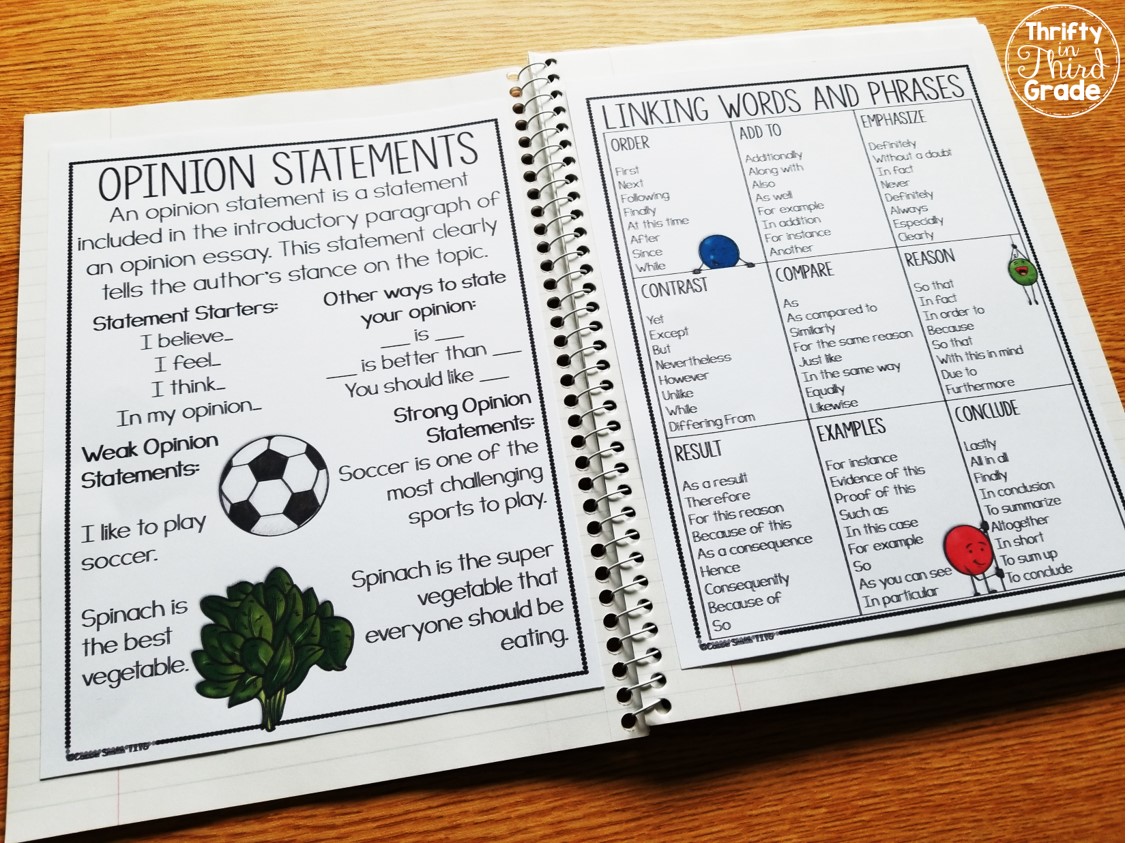 Thrifty
in
Third
Grade
OPINION STATEMENTS
An opinion statement is a statement
included in the introductory paragraph of
an opinion essay. This statement clearly
tells the author's stance on the topic.
Statement Starters:
I believe...
I feel...
I think...
In my opinion...
Other ways to state
your opinion:
___ is ___
___ is better than ___
You should like ___
Weak Opinion
Statements:
I like to play
soccer.
Spinach is
the best
vegetable.
Strong Opinion
Statements:
Soccer is one of the
most challenging
sports to play.
Spinach is the super
vegetable that
everyone should be
eating.
LINKING WORDS AND PHRASES
ORDER
First
Next
Following
Finally
At this time
After
Since
While
ADD TO
Additionally
Along with
Also
As well
For example
In addition
For instance
Another
EMPHASIZE
Definitely
Without a doubt
In fact
Never
Definitely
Always
Especially
Clearly
CONTRAST
Yet
Except
But
Nevertheless
However
Unlike
While
Differing From
COMPARE
As
As compared to
Similarly
For the same reason
Just like
In the same way
Equally
Likewise
REASON
So that
In fact
In order to
Because
So that
With this in mind
Due to
Furthermore
RESULT
As a result
Therefore
For this reason
Because of this
As a consequence
Hence
Consequently
Because of
So
EXAMPLES
For instance
Evidence of this
Proof of this
Such as
In this case
For example
So
As you can see
In particular
CONCLUDE
Lastly
All in all
Finally
In conclusion
To summarize
Altogether
In short
To sum up
To conclude